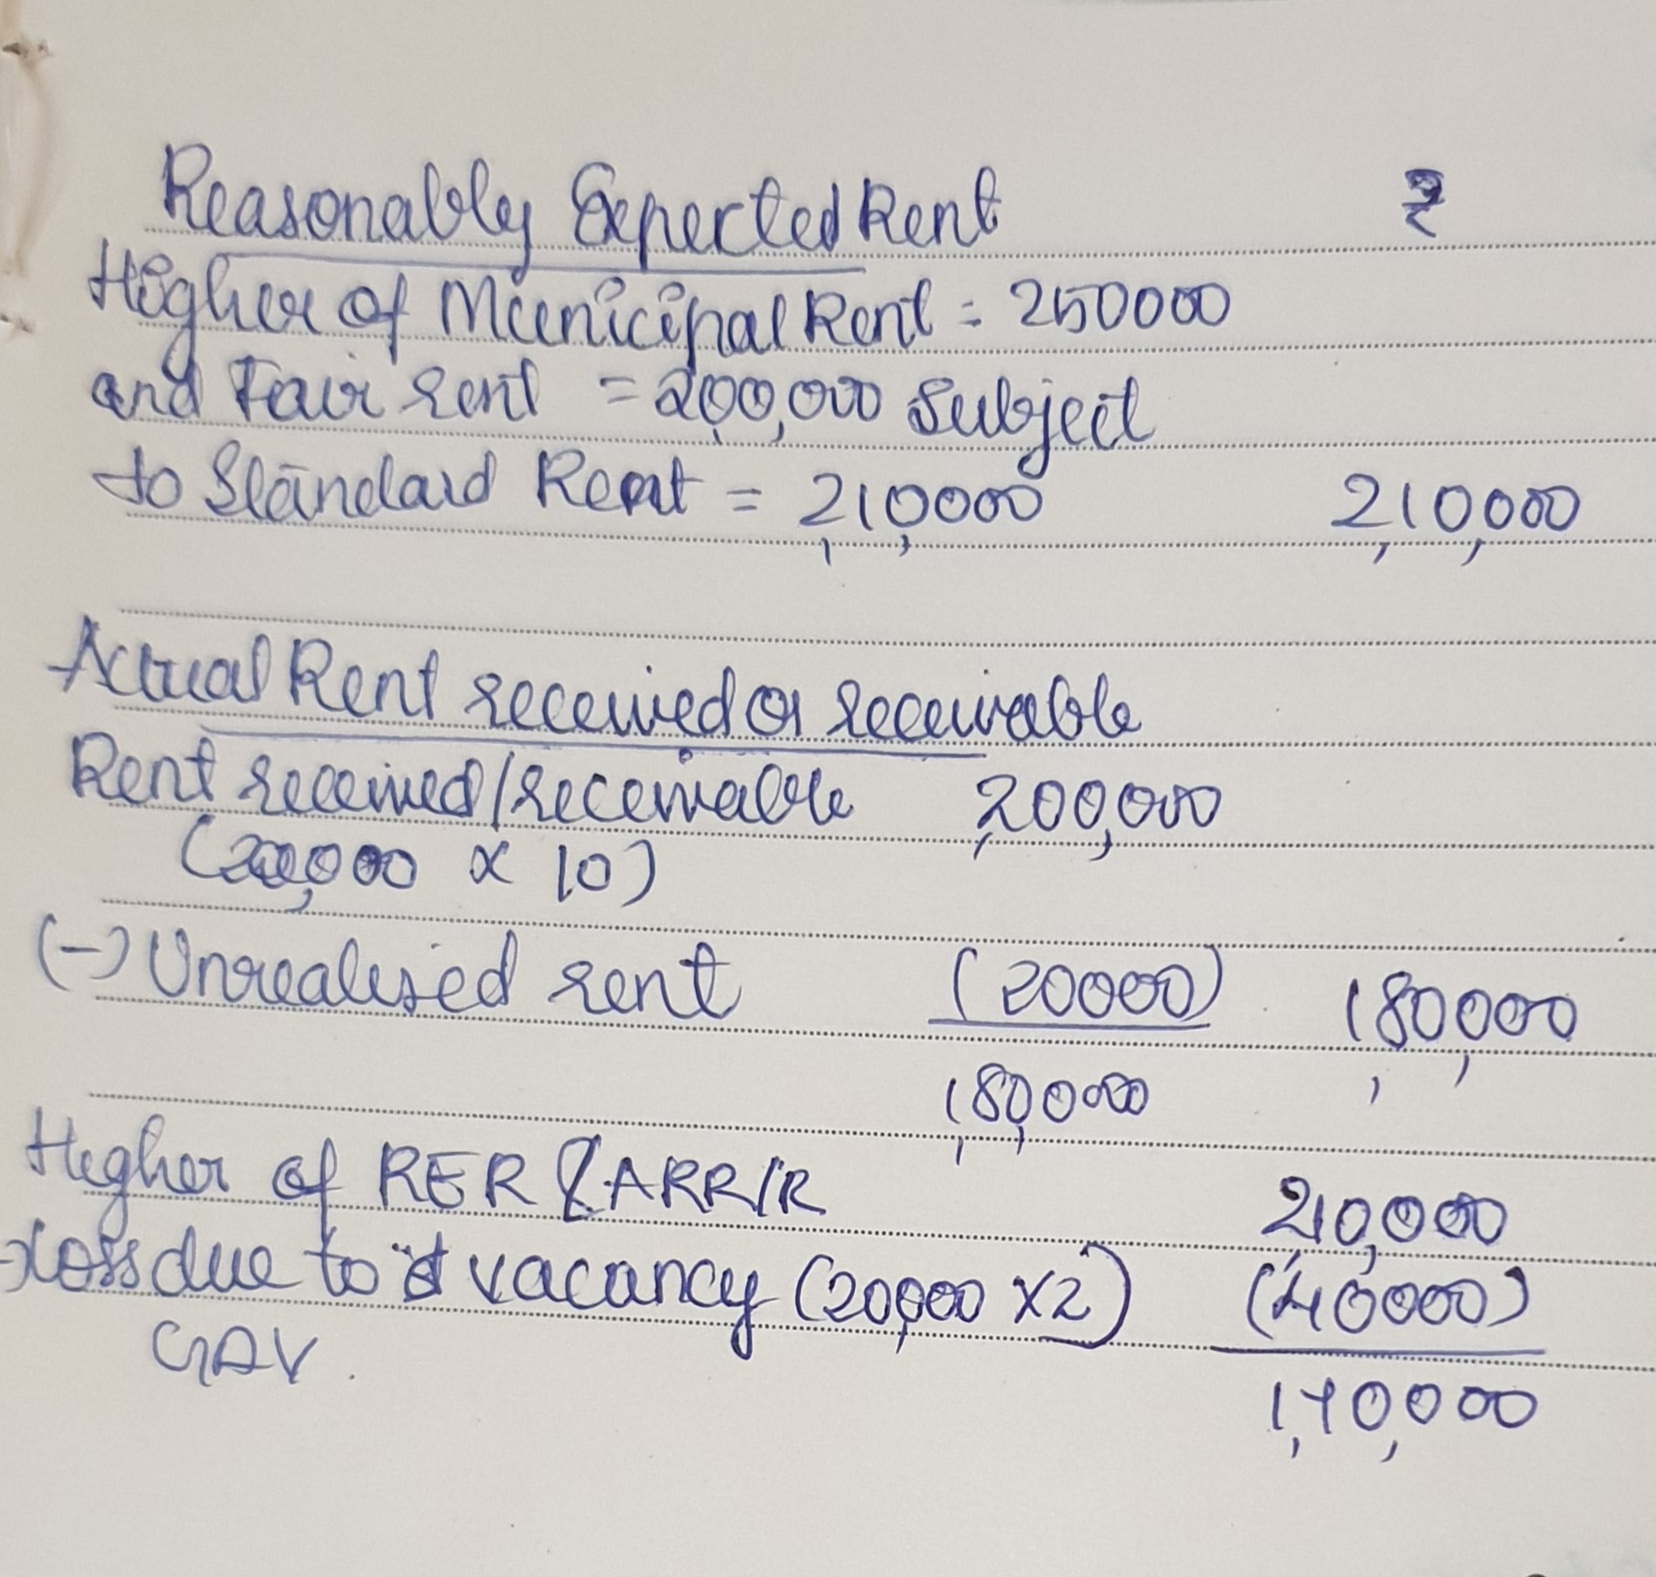 Reasonably Expected Rent ₹
Higher of Municipal Rent = 250000
and Fair rent = 2,00,000 Subject
to Standard Rent = 2,10,000 2,10,000
Actual Rent received or receivable
Rent received/receivable 2,00,000
(20,000 x 10)
(-) Unrealised rent (20000) 1,80,000
1,80,000
Higher of RER & ARR/R 2,10,000
Loss due to vacancy (20,000 x2) (40000)
GAV.
1,70,000